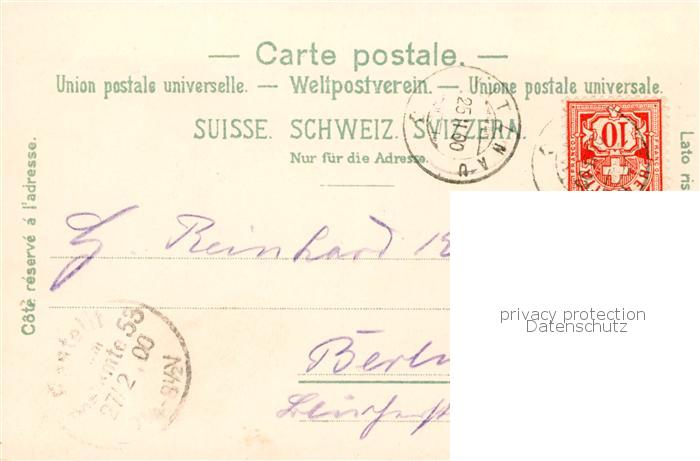 — Carte postale. —
Union postale universelle. — Weltpostverein. — Unione postale universale.
SUISSE. SCHWEIZ. SVIZZERA.
Nur für die Adresse.
Côté réservé à l'adresse.
Lato ris
25 II 00
10
G. Reinhard
Berl
27/2 00
privacy protection
Datenschutz